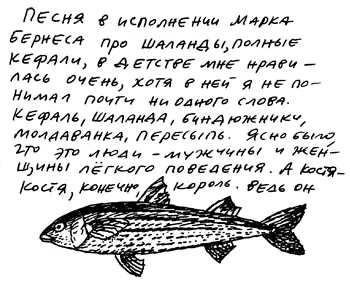 Песня в исполнении Марка
Бернеса про шаланды, полные
кефали, в детстве мне нрави-
лась очень, хотя в ней я не по-
нимал почти ни одного слова.
Кефаль, шаланда, биндюжники,
Молдаванка, Пересыпь. Ясно было,
что это люди - мужчины и жен-
щины лёгкого поведения. А Костя-
Костя, конечно, король. Ведь он